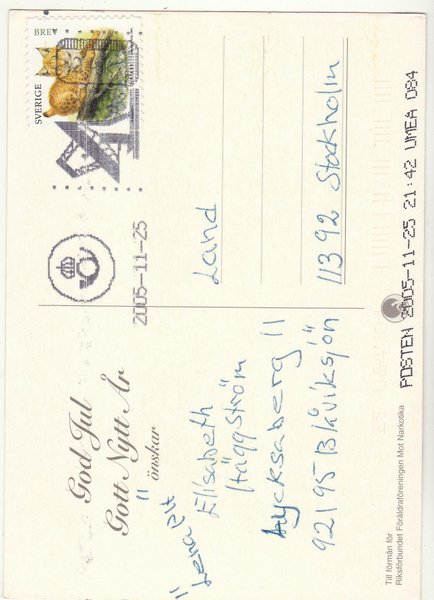 God Jul
Gott Nytt År
önskar
Elisabeth
Häggström
Lycksaberg 11
92195 Blåviksjön
Till förmån för
Riksförbundet Föräldraföreningen Mot Narkotika
SVERIGE
BREV
2005-11-25
Land
11392 Stockholm
POSTEN 2005-11-25 21:42 UMEA 084